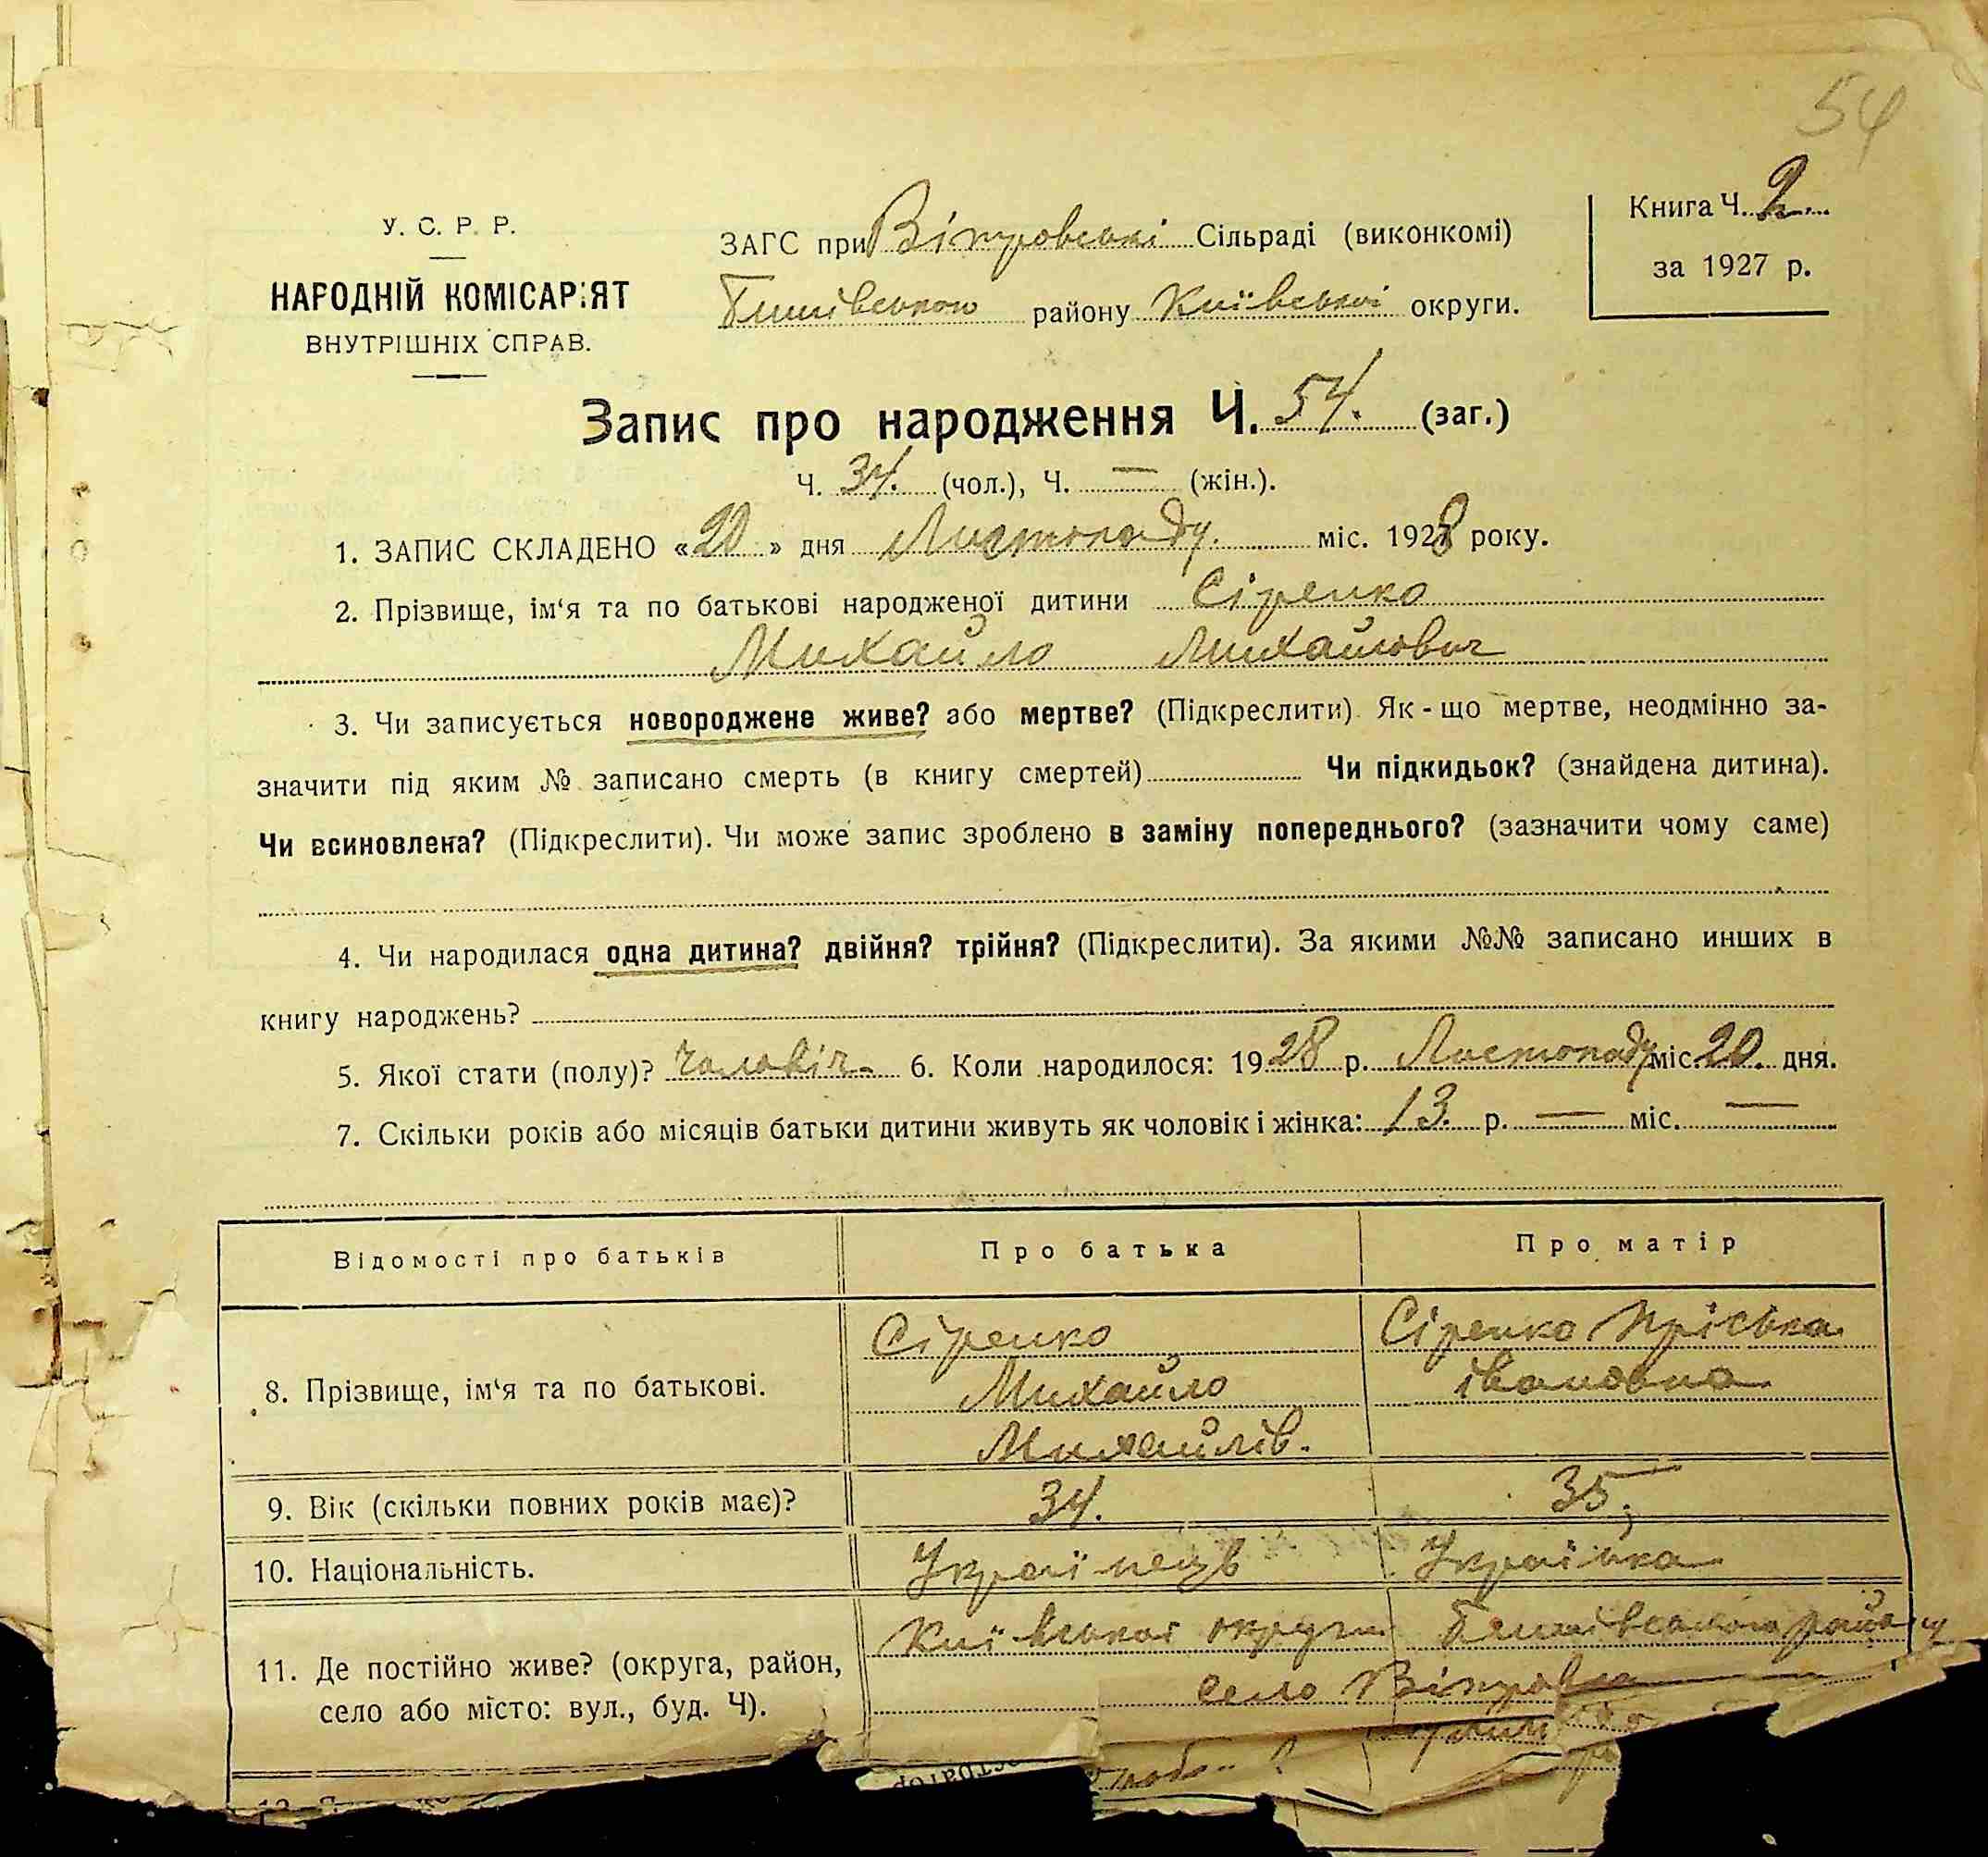 54
У. С. Р. Р.
НАРОДНІЙ КОМІСАРІЯТ
ВНУТРІШНІХ СПРАВ.
ЗАГС при Вітровські Сільраді (виконкомі)
району Київської округи.
Книга Ч. 2
за 1927 р.
Запис про народження Ч. 54. (заг.)
Ч. 34. (чол.), Ч. — (жін.).
1. ЗАПИС СКЛАДЕНО «20» дня Листопаду. міс. 1928 року.
2. Прізвище, ім‘я та по батькові народженої дитини Сіренко
Михайло Михайлович
3. Чи записується новороджене живе? або мертве? (Підкреслити) Як-що мертве, неодмінно за-
значити під яким № записано смерть (в книгу смертей) Чи підкидьок? (знайдена дитина).
Чи всиновлена? (Підкреслити). Чи може запис зроблено в заміну попереднього? (зазначити чому саме)
4. Чи народилася одна дитина? двійня? трійня? (Підкреслити). За якими №№ записано инших в
книгу народжень?
5. Якої стати (полу)? чоловіч. 6. Коли народилося: 1928 р. Листопаду міс. 20. дня.
7. Скільки років або місяців батьки дитини живуть як чоловік і жінка: 13. р. — міс. —
Відомості про батьків Про батька Про матір
8. Прізвище, ім‘я та по батькові.
Сіренко
Михайло
Михайлів.
Сіренко Пріська
івановна
9. Вік (скільки повних років має)? 34. 35.
10. Національність. Українець Українка
11. Де постійно живе? (округа, район,
село або місто: вул., буд. Ч).
Київської округи району
село Вітровка